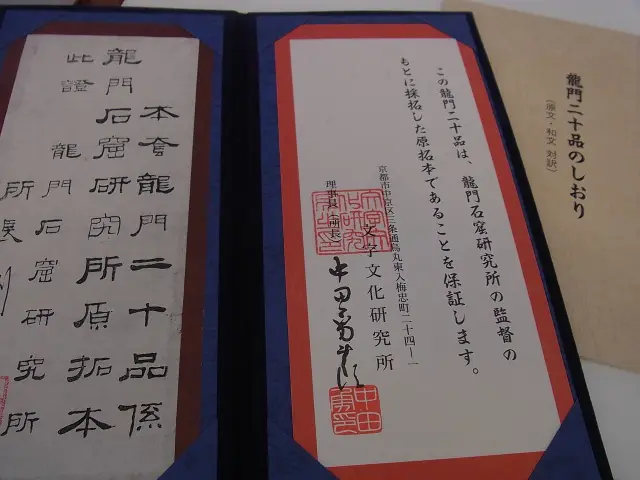 龍門二十品のしおり
(原文・和文 対訳)
この龍門二十品は、龍門石窟研究所の監督の
もとに採拓した原拓本であることを保証します。
京都市中京区三条通烏丸東入梅忠町二十四ー一
文字文化研究所
理事長(所長)
中田勇次郎
本套龍門二十品係
龍門石窟研究所原拓本
此證
龍門石窟研究所
所長